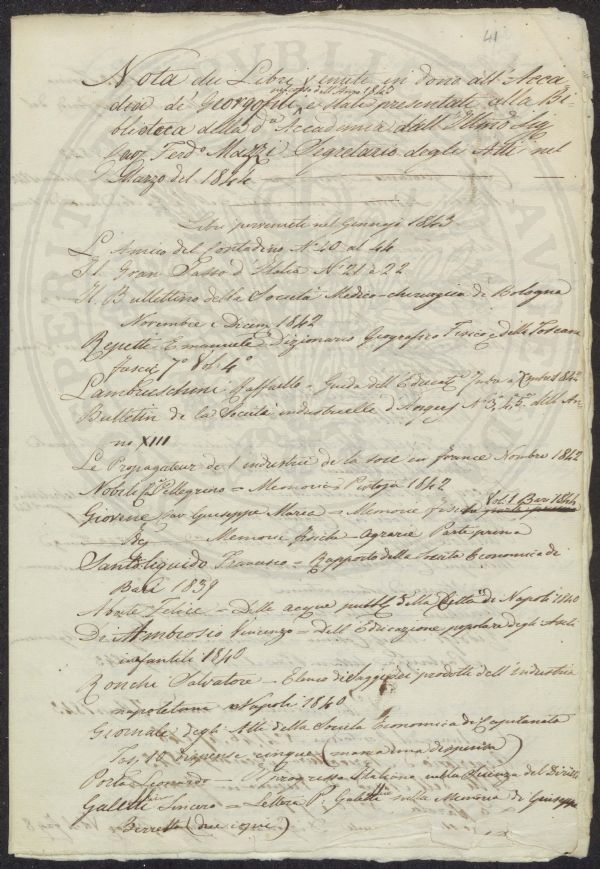 41
Nota dei Libri Venuti in dono all'Acca
demia de' Georgofili nel corso dell'Anno 1843 e stati presentati alla Bi-
blioteca della da Accademia dall'Illmo Sig
Cav Ferdo Segretario degli Atti nel
Marzo del 1844
Libri pervenuti nel Gennajo 1843
L'Amico del Contadino No 40 al 44
Il Gran Sasso d'Italia No 21 e 22
Il Bullettino della Società Medico-chirurgica di Bologna
Novembre e Dicem 1842
Repetti Emanuele Dizionario Geografico Fisico della Toscana
fasca 7o Vol. 4o
Lambruschini Raffaello - Guida dell'Educate
Bulletin de la Société industrielle d'Angers No 3, 4, 5 dell'An-
no XIII
Le Propagateur de l'industrie de la soie en france Nombre 1842
Nobili Pellegrino = Memoria Pistoja 1842
Giovene Cav Giuseppe Maria = Memorie fisico Vol. 1 Bari 1844
Memorie fisiche-agrarie Parte prima
Santoliquido Francesco = Rapporto della Società Economica di
Bari 1839
Abate Felice - Delle acque pubble della Città di Napoli 1840
De Ambrosio Vincenzo = Dell'Educazione popolare degli Asili
infantili 1840
Ronchi Salvatore - Elenco di Saggi dei prodotti dell'industria
napoletana Napoli 1840
Giornale degli Atti della Società Economica di Capitanata
Fas. 10 Dispense cinque (manca una dispensa)
Porta Leonardo - Il progresso Italiano nella Scienza del Diritto
Galetti Sincero = Lettera P. Galetti sulla Memoria di Giuseppe
(due copie)